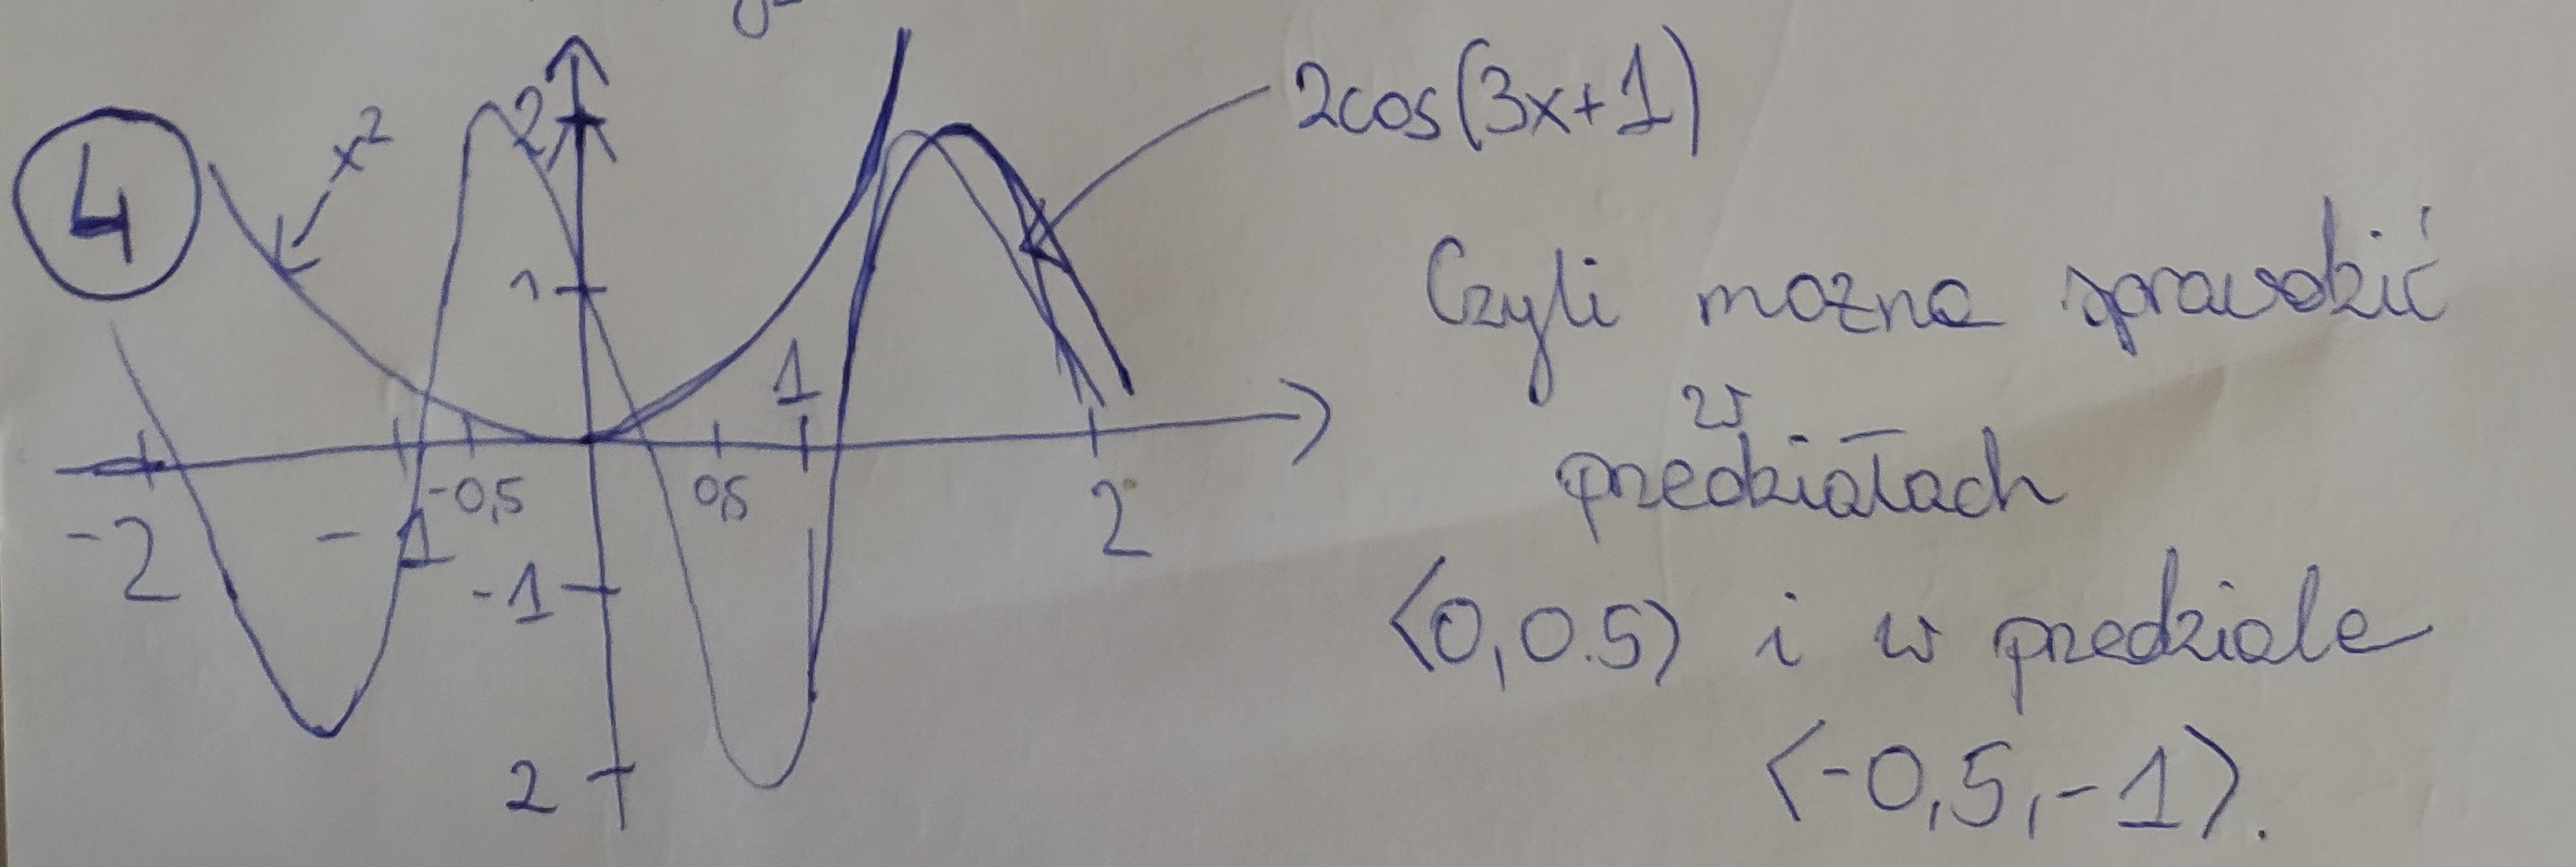 4
x²
2
2cos(3x+1)
1
1
-2
-1
-0,5
0,5
2
-1
2
Czyli można sprawdzić
w
przedziałach
<0,0.5) i w przedziale
<-0,5,-1>.